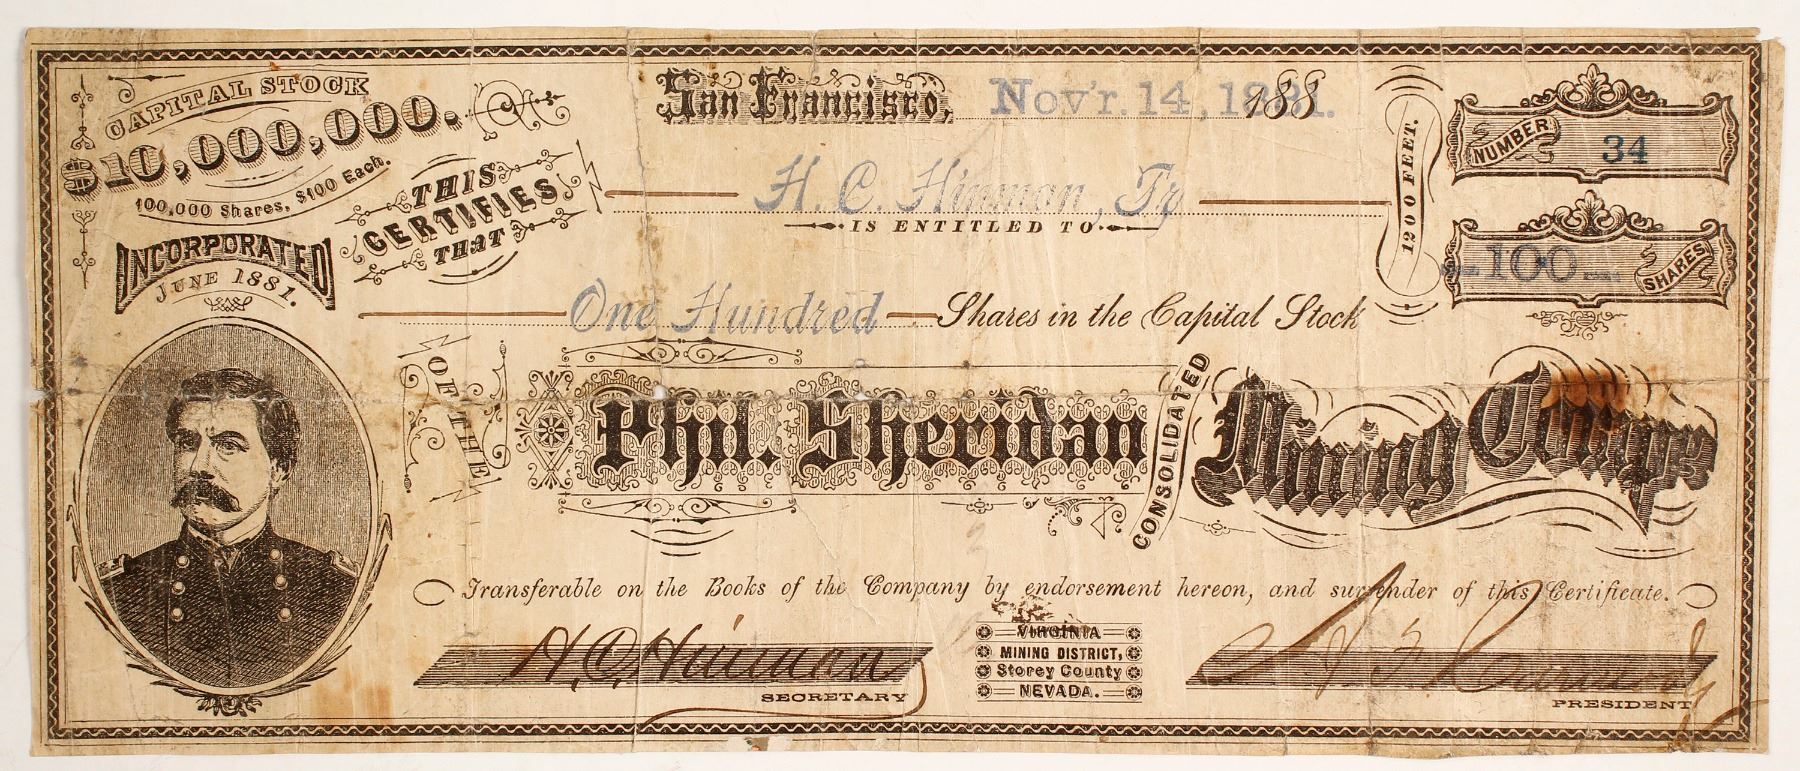 CAPITAL STOCK
$10,000,000.
100,000 Shares, $100 Each.
INCORPORATED
JUNE 1881.
THIS
CERTIFIES
THAT
San Francisco, Nov'r. 14, 1881. 188
H. C. Hinman, Jr
IS ENTITLED TO
One Hundred Shares in the Capital Stock
1200 FEET.
NUMBER 34
100 SHARES
OF THE
Phil. Sheridan CONSOLIDATED Mining Comp'y
Transferable on the Books of the Company by endorsement hereon, and surrender of this Certificate.
H. C. Hinman
SECRETARY
VIRGINIA
MINING DISTRICT,
Storey County
NEVADA.
PRESIDENT